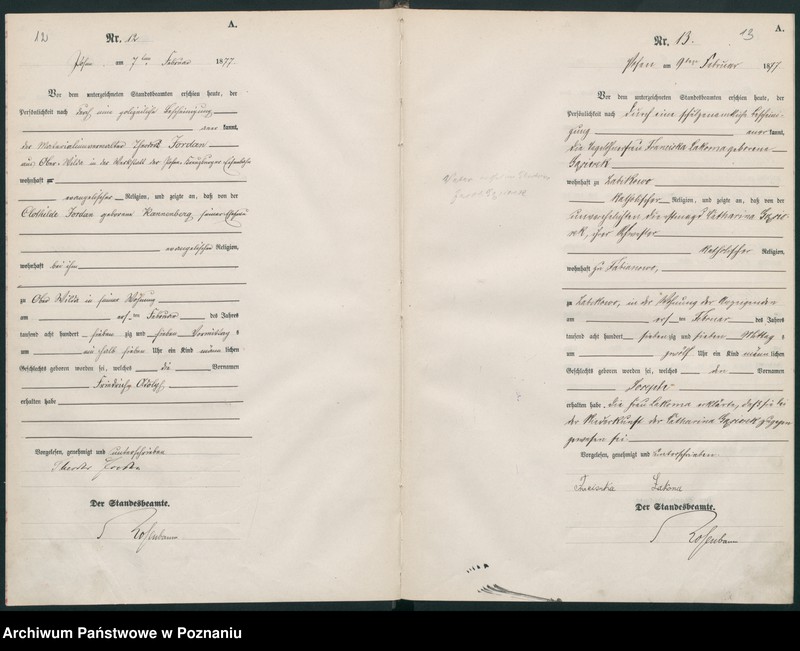 12
A.
Nr. 12
Posen am 7ten Februar 1877.
Vor dem unterzeichneten Standesbeamten erschien heute, der
Persönlichkeit nach durch eine polizeiliche Bescheinigung
aner kannt,
der Materialienverwalter Theodor Jordan
aus Ober Wilda in der Werkstatt der
wohnhaft
evangelischer Religion, und zeigte an, daß von der
Clothilde Jordan geborene Kannenberg, seiner Ehefrau
evangelischer Religion,
wohnhaft bei ihm
zu Ober Wilda in seiner Wohnung
am ersten Februar des Jahres
tausend acht hundert sieben zig und sieben Vormittag s
um ein halb sieben Uhr ein Kind männ lichen
Geschlechts geboren worden sei, welches die Vornamen
Friedrich
erhalten habe
Vorgelesen, genehmigt und unterschrieben
Theodor Jordan
Der Standesbeamte.
Rosenbaum
13
A.
Nr. 13.
Posen am 9ten Februar 1877
Vor dem unterzeichneten Standesbeamten erschien heute, der
Persönlichkeit nach durch eine schulzenamtliche Beschei-
gung aner kannt,
die Franciska Lakoma geborene
wohnhaft zu Zabikowo
katholischer Religion, und zeigte an, daß von der
unverehelichten Dienstmagd Catharina
ihrer Schwester
katholischer Religion,
wohnhaft zu Fabianowo,
zu Zabikowo, in der Wohnung der Anzeigenden
am ersten Februar des Jahres
tausend acht hundert sieben zig und sieben Mittag s
um zwölf Uhr ein Kind männ lichen
Geschlechts geboren worden sei, welches den Vornamen
Joseph
erhalten habe. Die Frau Lakoma erklärte, daß sie bei
der Niederkunft der Catharina zugegen
gewesen sei
Vorgelesen, genehmigt und unterschrieben
Lakoma
Der Standesbeamte.
Rosenbaum
Archiwum Państwowe w Poznaniu